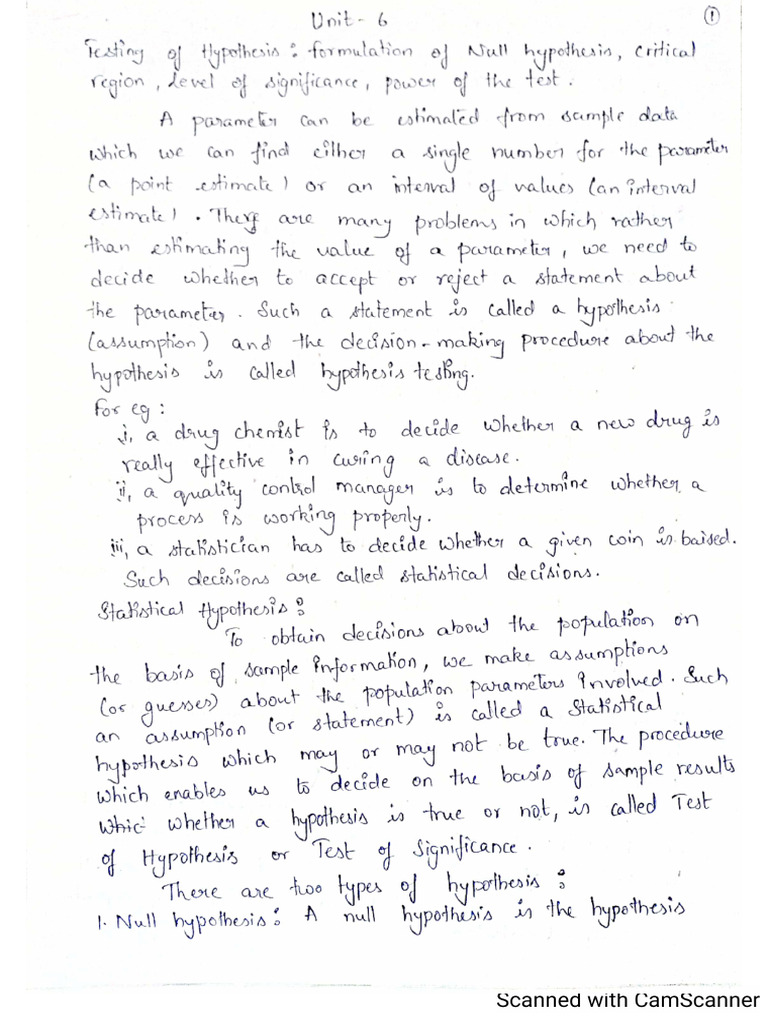 Unit - 6
①
Testing of Hypothesis : formulation of Null hypothesis, critical
region, Level of significance, power of the test.
A parameter can be estimated from sample data
which we can find either a single number for the parameter
(a point estimate) or an interval of values (an interval
estimate). There are many problems in which rather
than estimating the value of a parameter, we need to
decide whether to accept or reject a statement about
the parameter. Such a statement is called a hypothesis
(assumption) and the decision-making procedure about the
hypothesis is called hypothesis testing.
For eg :
i, a drug chemist is to decide whether a new drug is
really effective in curing a disease.
ii, a quality control manager is to determine whether a
process is working properly.
iii, a statistician has to decide whether a given coin is baised.
Such decisions are called statistical decisions.
Statistical Hypothesis :
To obtain decisions about the population on
the basis of sample information, we make assumptions
(or guesses) about the population parameters involved. Such
an assumption (or statement) is called a Statistical
hypothesis which may or may not be true. The procedure
which enables us to decide on the basis of sample results
whic whether a hypothesis is true or not, is called Test
of Hypothesis or Test of Significance.
There are two types of hypothesis :
1. Null hypothesis : A null hypothesis is the hypothesis
Scanned with CamScanner